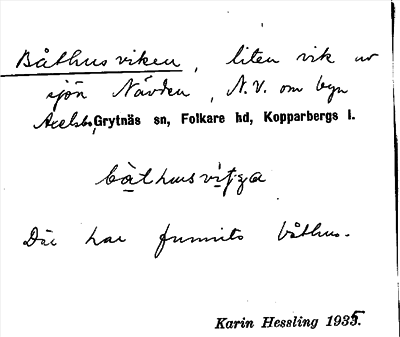 Båthusviken, liten vik av
sjön Nävden, N.V. om byn
Grytnäs sn, Folkare hd, Kopparbergs l.
Där har funnits båthus.
Karin Hessling 1935.